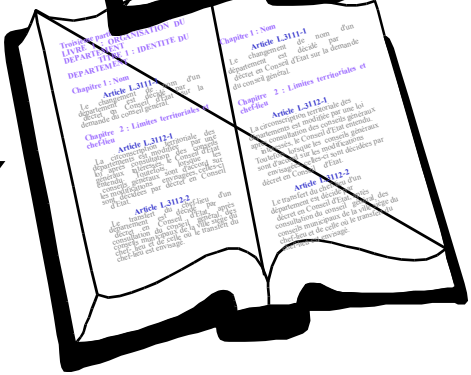 Troisième partie
LIVRE 1 : ORGANISATION DU
DEPARTEMENT
TITRE 1 : IDENTITE DU
DEPARTEMENT
Chapitre 1 : Nom
Article L.3111-1
Le changement de nom d'un
département est décidé par
décret en Conseil d'Etat sur la
demande du conseil général.
Chapitre 2 : Limites territoriales et
chef-lieu
Article L.3112-1
La circonscription territoriale des
départements est modifiée par une loi
après consultation des conseils généraux
intéressés, le Conseil d'Etat
entendu.
Toutefois, lorsque les conseils généraux
sont d'accord sur
les modifications envisagées, celles-ci
sont décidées par décret en Conseil
d'Etat.
Article L.3112-2
Le transfert du chef-lieu d'un
département est décidé par
décret en Conseil d'Etat, après
consultation du conseil général, des
conseils municipaux de la ville siège du
chef-lieu et de celle où le transfert du
chef-lieu est envisagé.
Chapitre 1 : Nom
Article L.3111-1
Le changement de nom d'un
département est décidé par
décret en Conseil d'Etat sur la demande
du conseil général.
Chapitre 2 : Limites territoriales et
chef-lieu
Article L.3112-1
La circonscription territoriale des
départements est modifiée par une loi
après consultation des conseils généraux
intéressés, le Conseil d'Etat entendu.
Toutefois, lorsque les conseils généraux
sont d'accord sur les modifications
envisagées, celles-ci sont décidées par
décret en Conseil d'Etat.
Article L.3112-2
Le transfert du chef-lieu d'un
département est décidé par
décret en Conseil d'Etat, après
consultation du conseil général, des
conseils municipaux de la ville siège du
chef-lieu et de celle où le transfert du
chef-lieu est envisagé.